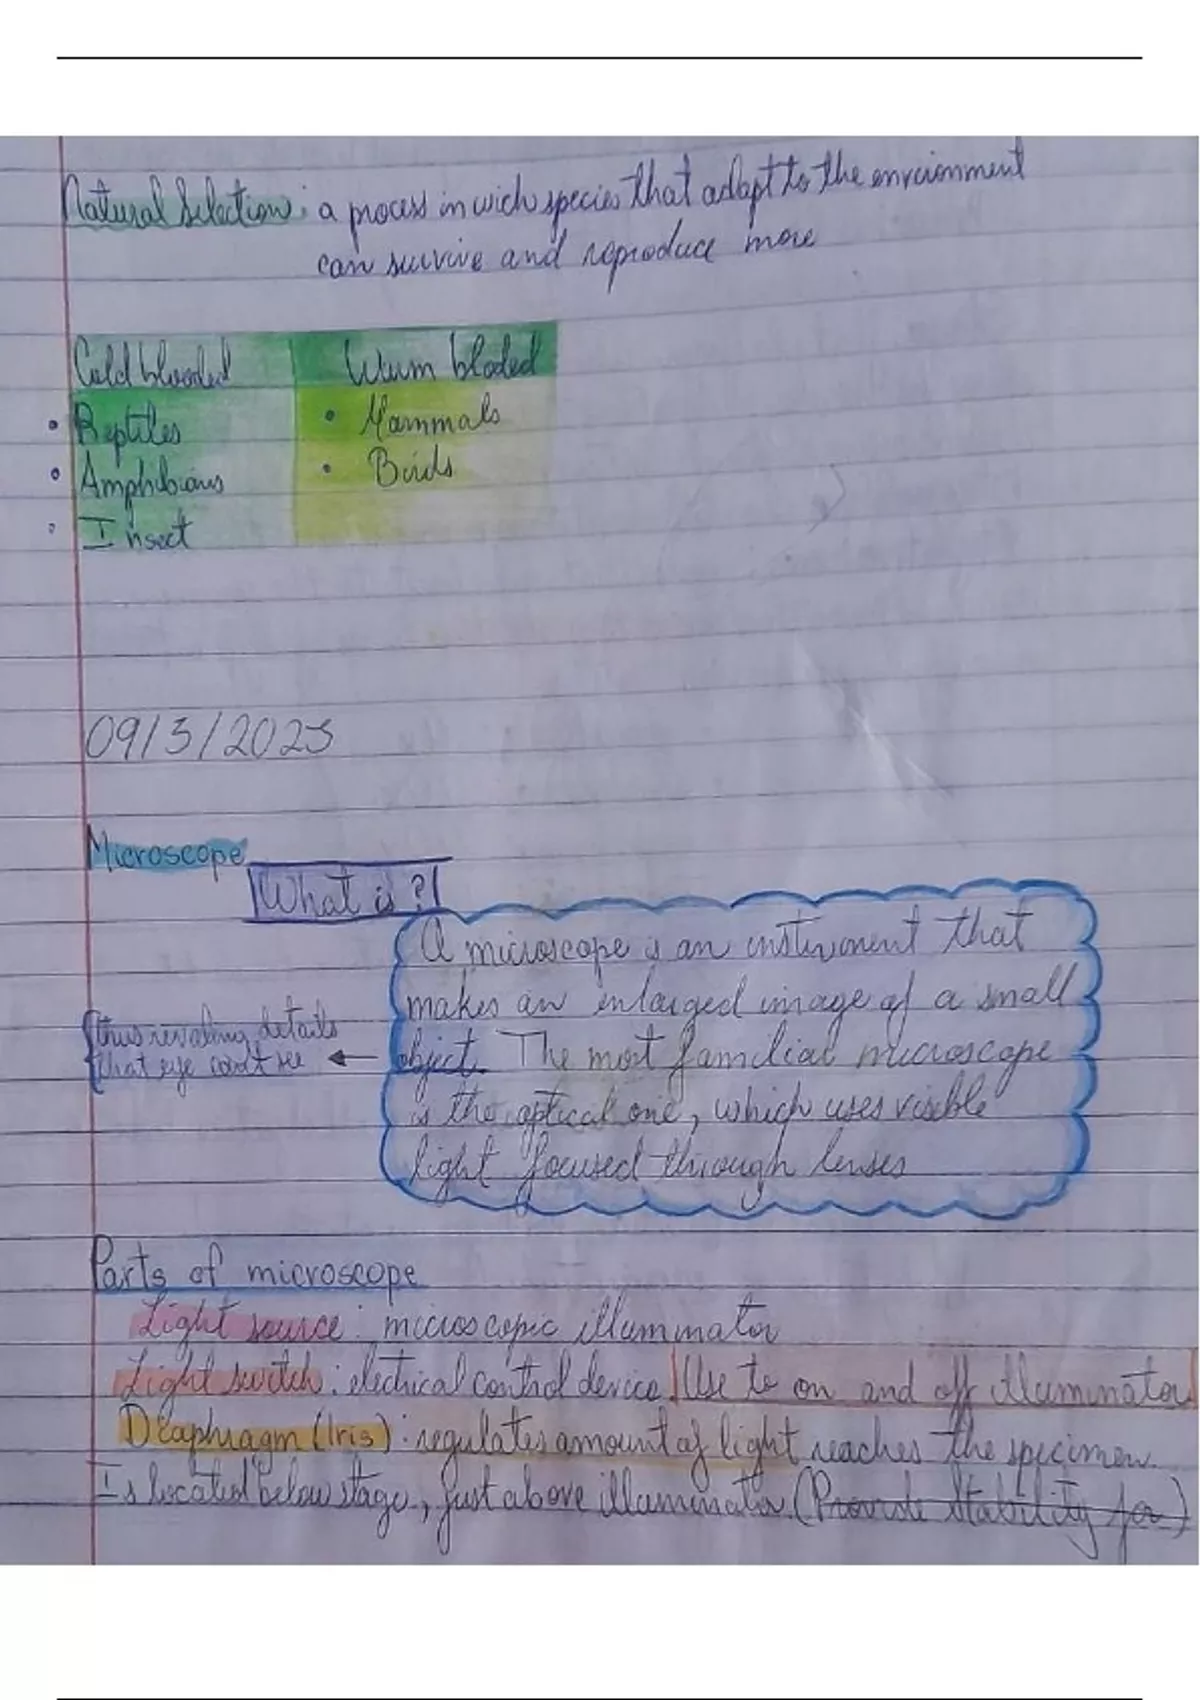 Natural Selection: a process in wich species that adapt to the enviroment
can survive and reproduce more
Cold blooded Warm bloded
• Reptiles • Mammals
• Amphibians • Birds
• Insect
09/3/2023
Microscope
What is?
A microscope is an instrument that
makes an enlarged image of a small
object. The most familiar microscope
is the optical one, which uses visible
light focused through lenses
thus revaling details
that eye can't see
Parts of microscope
Light source: microscopic illuminator
Light switch: electrical control device. Use to on and off illuminator
Diaphragm (Iris): regulates amount of light reaches the specimen.
Is located below stage, just above illuminator. (Provide stability for)